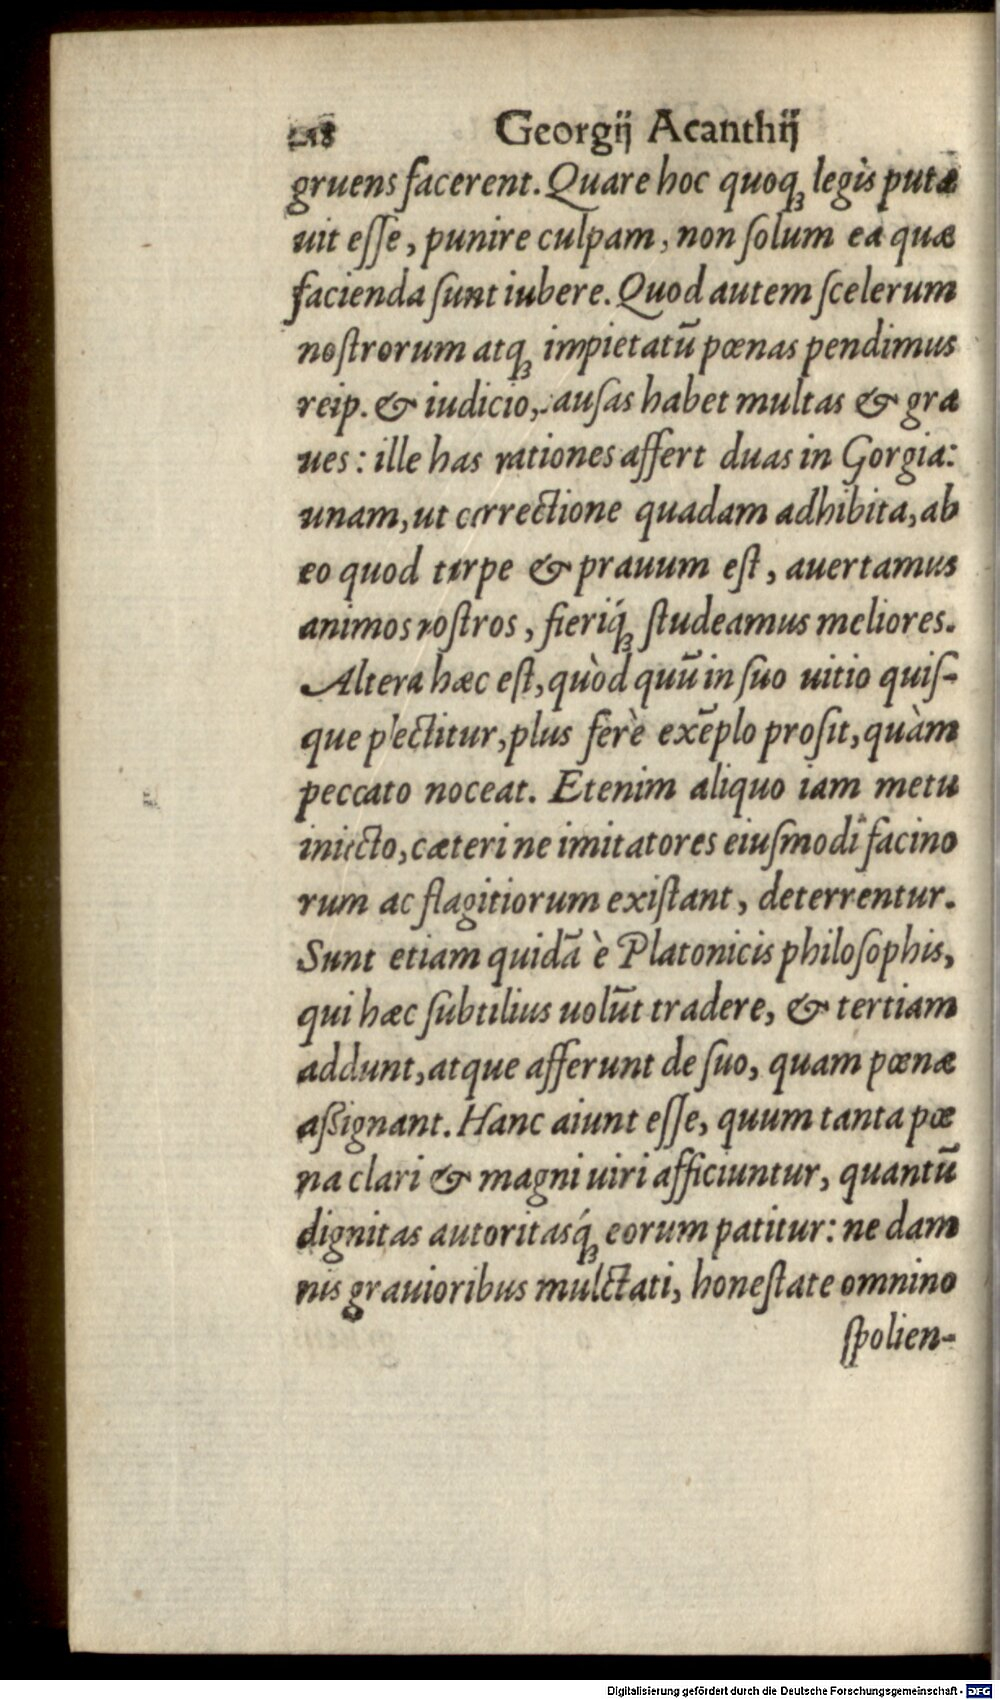 Georgij Acanthij
gruens facerent. Quare hoc quoq; legis puta
uit eſſe, punire culpam, non ſolum ea quæ
facienda ſunt iubere. Quod autem ſcelerum
noſtrorum atq; impietatũ pœnas pendimus
reip. & iudicio, auſas habet multas & gra
ues: ille has rationes affert duas in Gorgia:
unam, ut correctione quadam adhibita, ab
eo quod turpe & prauum eſt, auertamus
animos noſtros, fieriq́; ſtudeamus meliores.
Altera hæc eſt, quòd quũ in ſuo uitio quiſ-
que plectitur, plus ferè exẽplo proſit, quàm
peccato noceat. Etenim aliquo iam metu
iniecto, cæteri ne imitatores eiuſmodi facino
rum ac flagitiorum exiſtant, deterrentur.
Sunt etiam quidã è Platonicis philoſophis,
qui hæc ſubtilius uolũt tradere, & tertiam
addunt, atque afferunt de ſuo, quam pœnæ
aſsignant. Hanc aiunt eſſe, quum tanta pœ
na clari & magni uiri afficiuntur, quantũ
dignitas autoritasq́; eorum patitur: ne dam
nis grauioribus mulctati, honeſtate omnino
ſpolien-
Digitalisierung gefördert durch die Deutsche Forschungsgemeinschaft - DFG